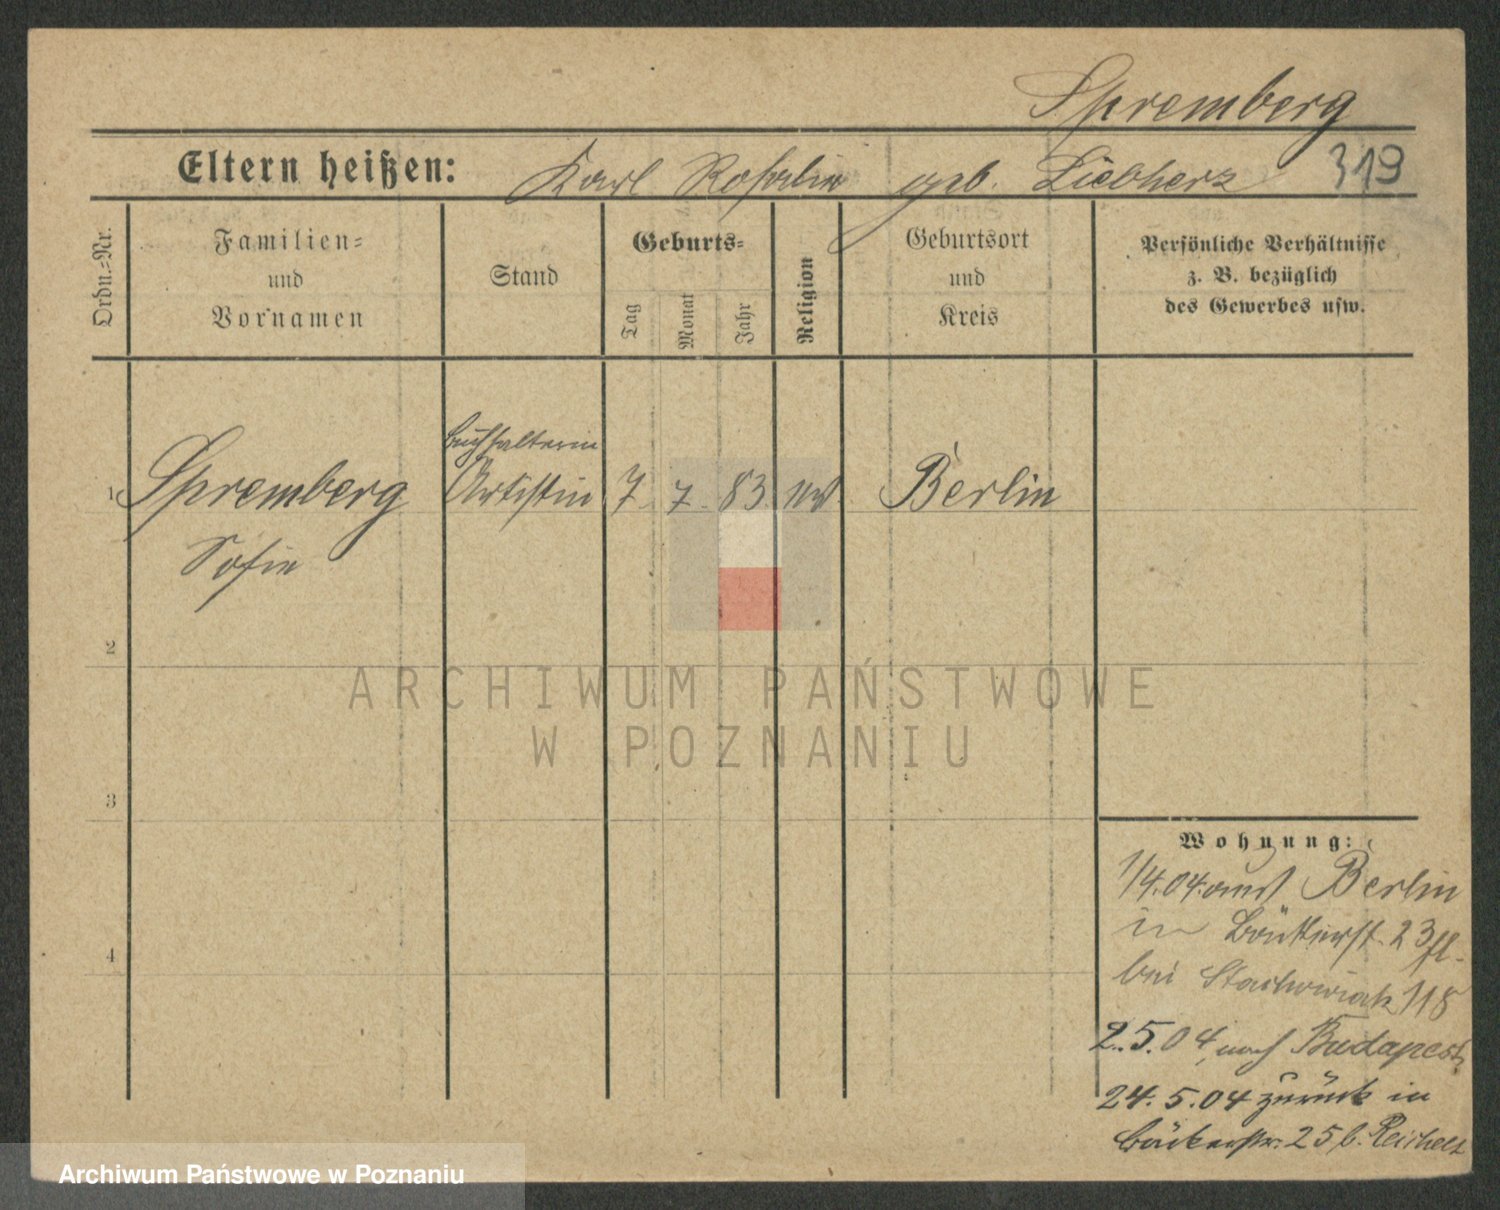 Spremberg
Eltern heißen: Karl Rosalie geb. Liebherz 319
Ordn.-Nr.
Familien-
und
Vornamen
Stand
Geburts-
Tag
Monat
Jahr
Religion
Geburtsort
und
Kreis
Persönliche Verhältnisse
z. B. bezüglich
des Gewerbes usw.
Buchhalterin
1 Spremberg Artistin 7. 7. 83. Berlin
Sofie
2
ARCHIWUM PAŃSTWOWE
W POZNANIU
3
4
Wohnung:
1/4.04. Berlin
in Bäckerst. 23
bei Stachowiak 118
2.5.04, nach Budapest
24.5.04 zurück in
Bäckerstr. 25 b. Reichelt
Archiwum Państwowe w Poznaniu